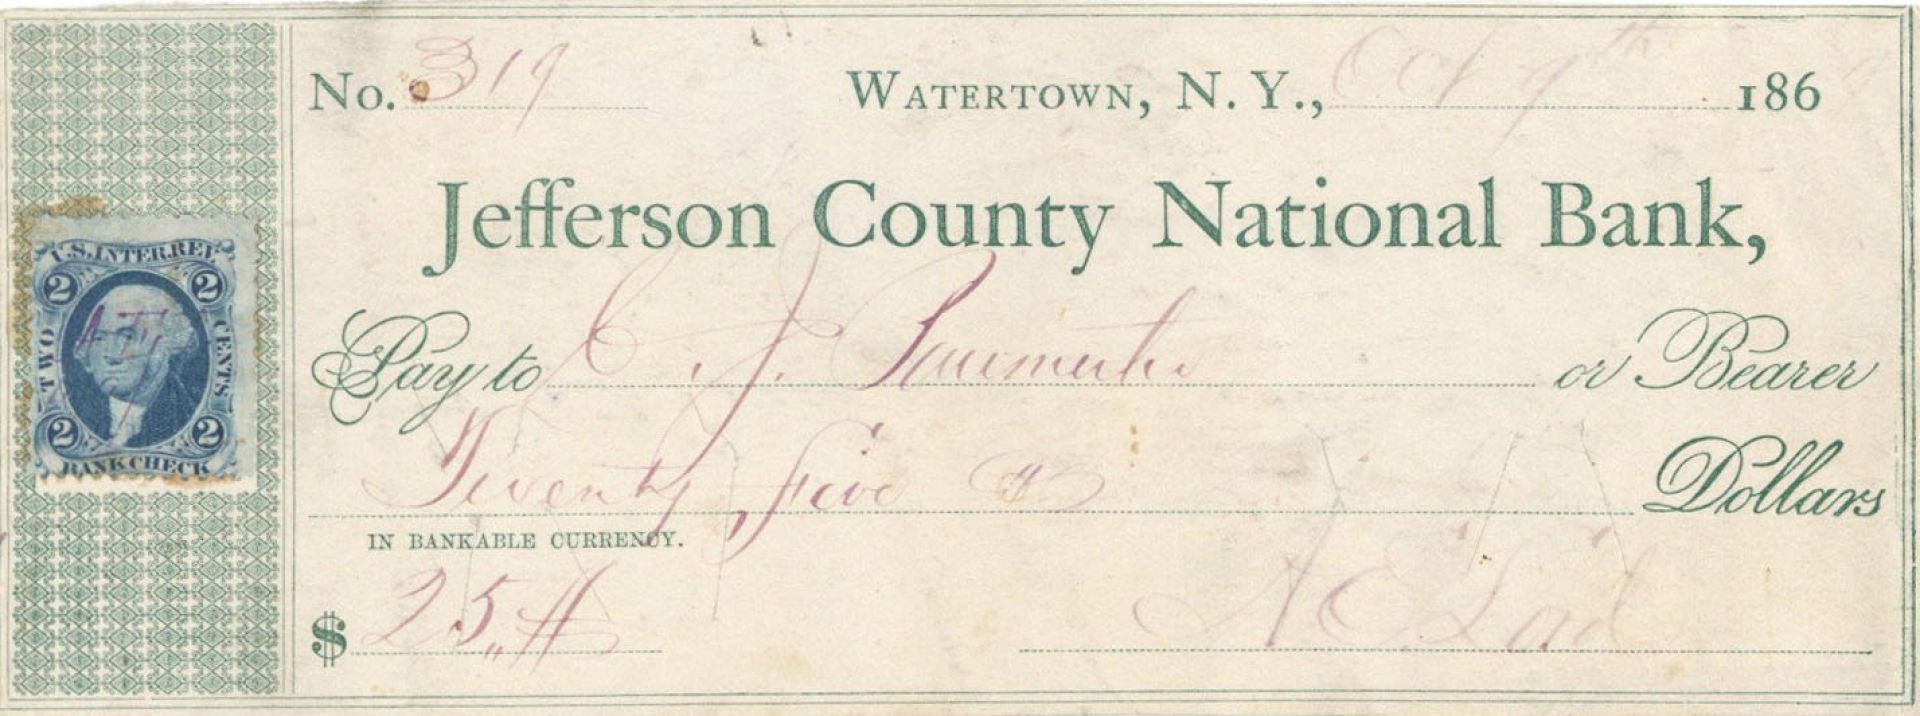 No. 319 Watertown, N. Y., Oct 9th 186
Jefferson County National Bank,
U.S. INTER. REV.
2 2
TWO CENTS
2 2
BANK CHECK
Pay to C. J. or Bearer
Twenty five Dollars
IN BANKABLE CURRENCY.
$ 25 A E Lad